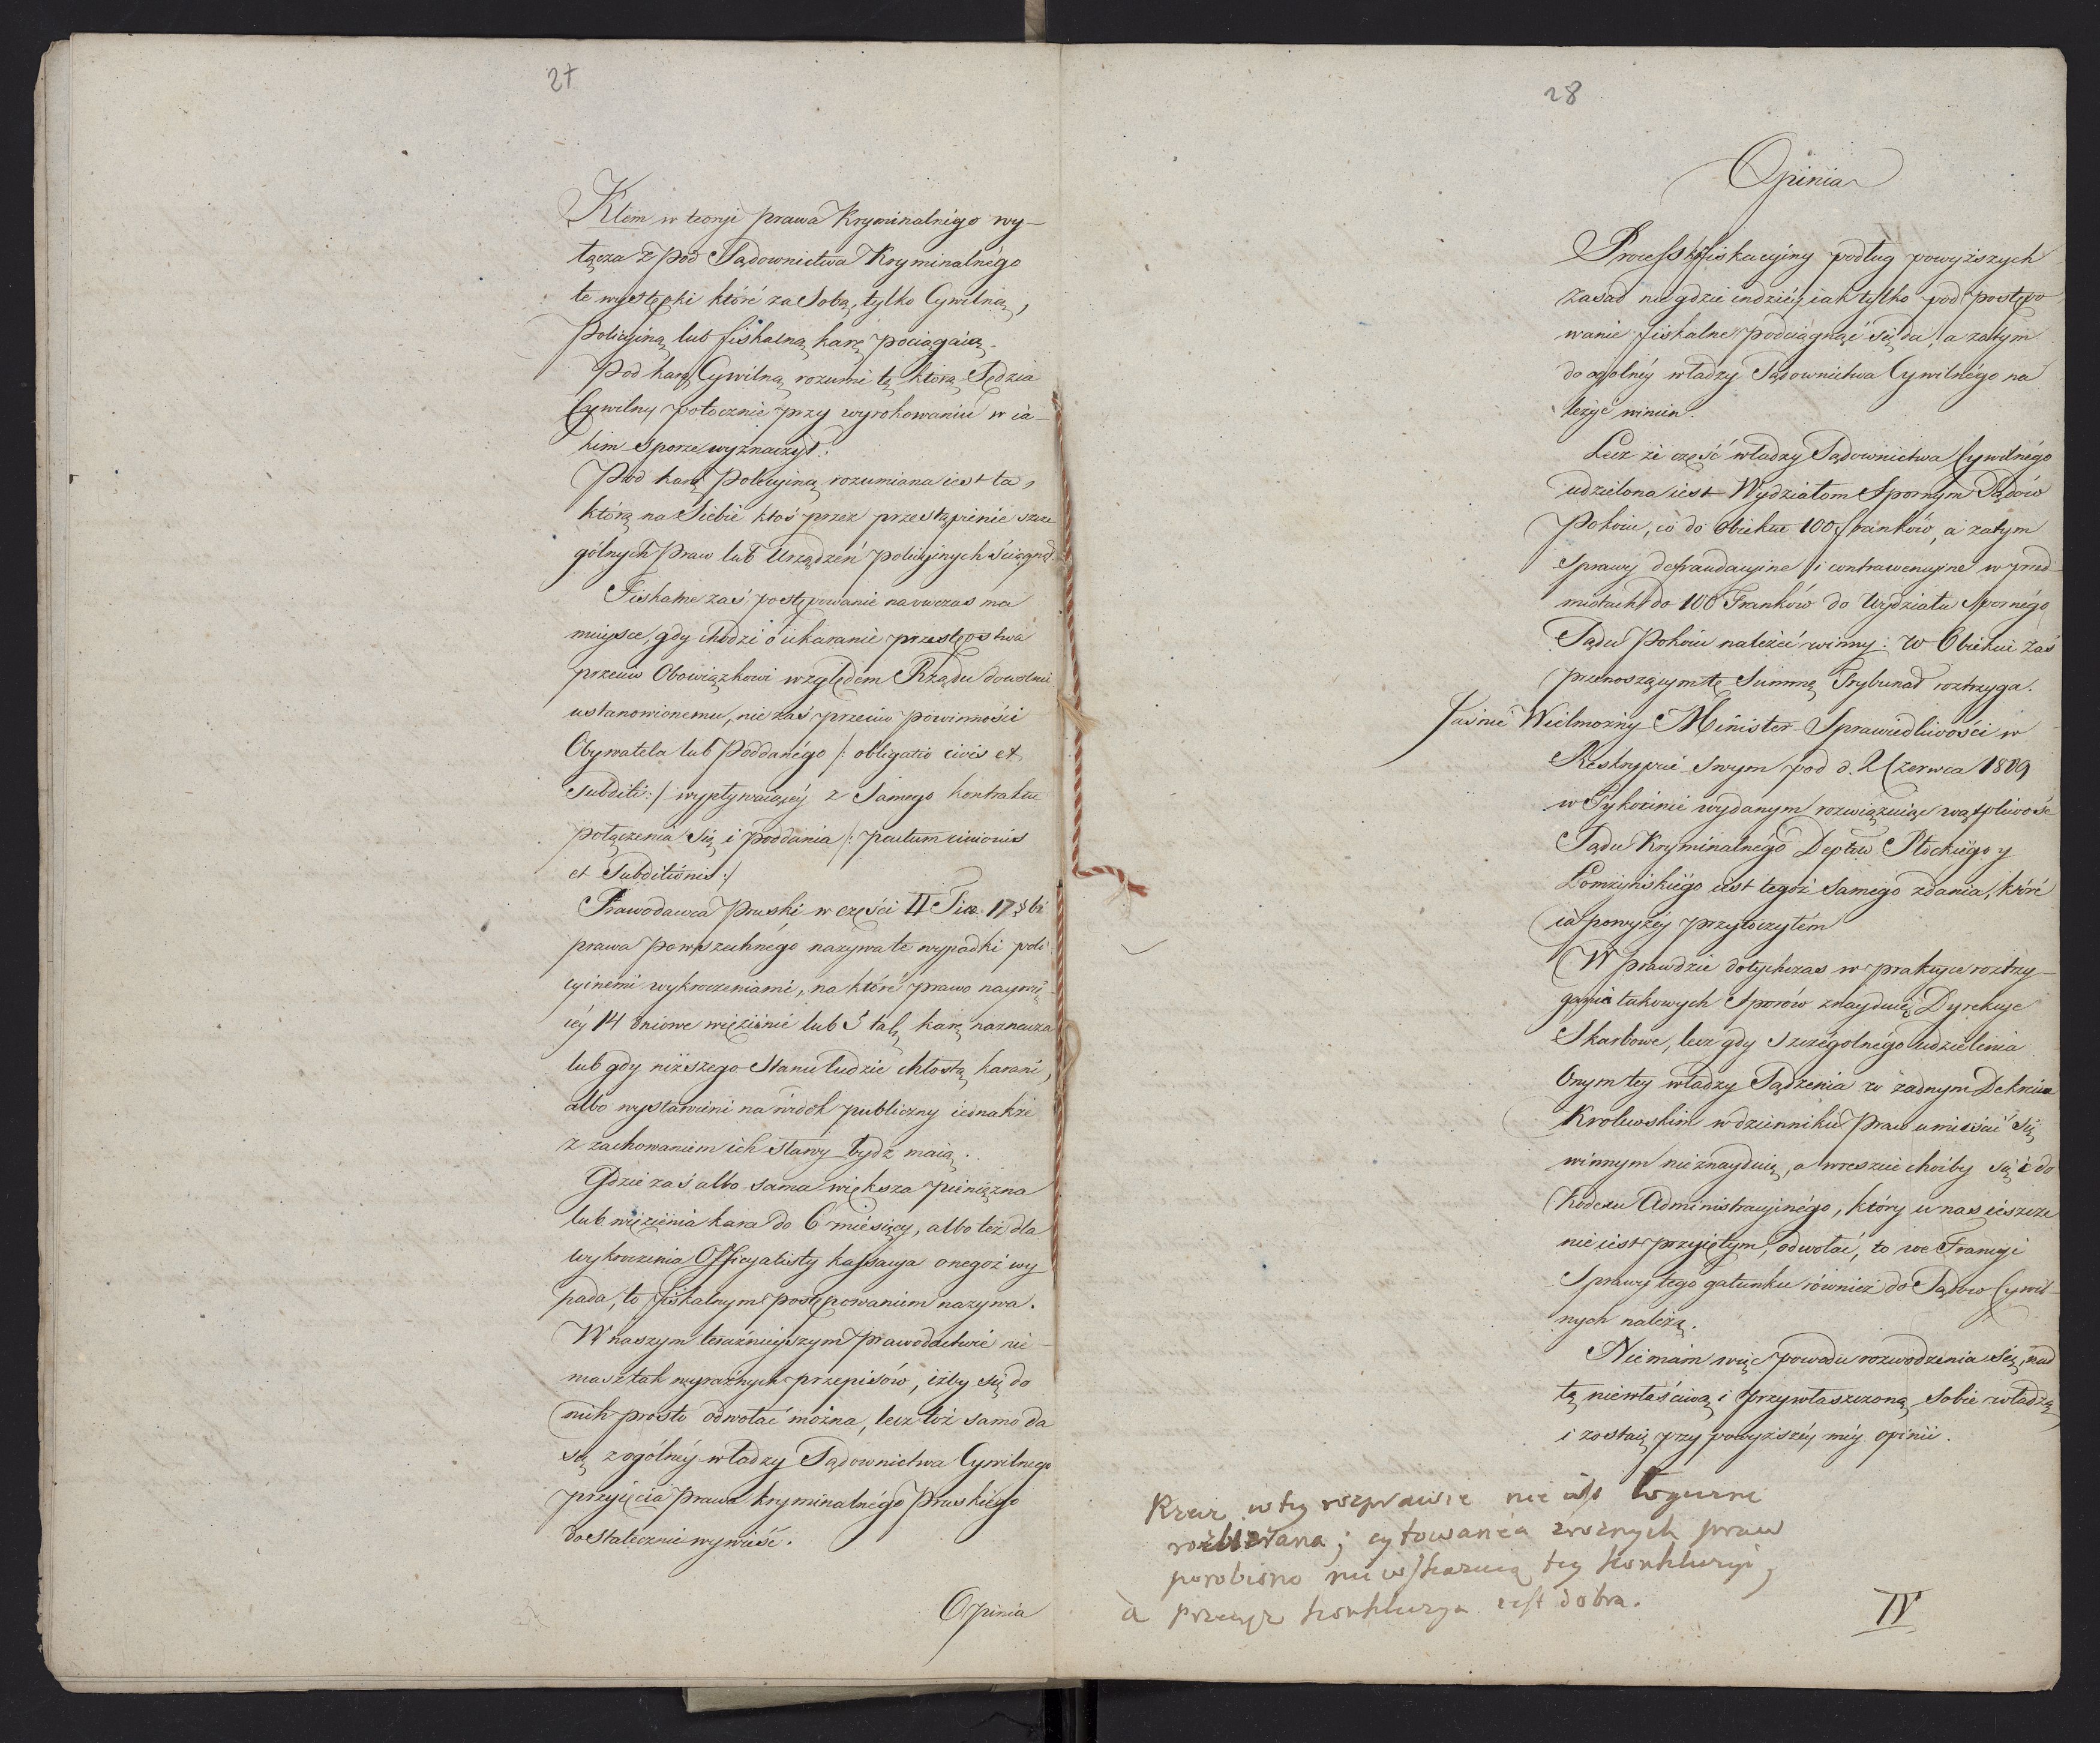 27
Klein w teoryi prawa Kryminalnégo wy-
łącza z pod Sądownictwa Kryminalnégo
te występki któré za Sobą, tylko Cywilną,
Policyiną lub fiskalną karę pociągaią.
Pod karą Cywilną rozumie tę którą Sędzia
Cywilny potocznie przy wyrokowaniu w ia-
kim Sporze wyznaczył.
Pod karą Policyiną rozumiana iest ta,
którą na Siebie ktoś przez przestąpienie szcze
gólnych Praw lub Urządzeń policyinych ściągnął
Fiskalne zaś postępowanie naowczas ma
mieysce, gdy chodzi o ukaranie przestępstwa
przeciw Obowiązkowi względem Rządu dowolnie
ustanowionemu, nie zaś przeciw powinności
Obywatela lub Poddanégo /: obligatio civis et
Subditi :/ wypływaiącéy z Samego kontraktu
połączenia Się i poddania /: pactum unionis
et Subditionis :/
Prawodawca Pruski w części II Tit. 17 §
prawa powszechnégo nazywa te wypadki poli
cyinemi wykroczeniami, na któré prawo naywię-
céy 14 dniowe więzienie lub 5 tal. karę naznacza
lub gdy niższego Stanu ludzie chłostą karani,
albo wystawieni na widok publiczny iednakże
z zachowaniem ich sławy bydź maią.
Gdzie zaś albo sama większa pieniężna
lub więzienia kara do 6 miésięcy, albo też dla
wykroczenia Officyalisty kassacya onegoż wy
pada, to fiskalnym postępowaniem nazywa.
W naszym teraźnieyszym prawodactwie nie-
masz tak wyraźnych przepisów, iżby się do
nich prosto odwołać można, lecz toż samo da
się z ogólnéy władzy Sądownictwa Cywilnego
przyięcia Prawa kryminalnégo Pruskiego
dostatecznie wywieść.
Opinia
28
Opinia
Process fiskacyiny podług powyższych
zasad nie gdzie indziéy iak tylko pod postępo
wanie fiskalne podciągnąć się da, a zatym
do ogolnéy władzy Sądownictwa Cywilnégo na
leżyć winien.
Lecz że część władzy Sądownictwa Cywilnégo
udzielona iest Wydziałom Spornym Sądów
Pokoiu, co do Obiektu 100 franków, a zatym
Sprawy defraudacyine i contrawencyine w przed-
miotach do 100 Franków do Wydziału Spornégo
Sądu Pokoiu należeć winny: w Obiekcie zaś
przenoszącym tę Summę Trybunał roztrzyga.
Jaśnie Wielmożny Minister Sprawiedliwości w
Reskrypcie Swym pod d. 2 Czerwca 1809
w Tykocinie wydanym rozwiązuiąc wątpliwość
Sądu Kryminalnégo Deptów Płockiégo y
Łomżyńskiégo iest tegoż Samégo zdania, któré
ia powyżéy przytoczyłem
W prawdzie dotychczas w praktyce roztrzy-
gania takowych Sporów znayduią Dyrekcye
Skarbowe, lecz gdy Szczególnégo udzielenia
Onym téy władzy Sądzenia w żadnym Dekrecie
Krolewskim w dzienniku Praw umieścić Się
winnym nieznayduię, a wreszcie choćby się i do
Kodexu Administracyinégo, który u nas ieszcze
nie iest przyiętym, odwołać, to we Francyi
Sprawy tego gatunku również do Sądów Cywil-
nych należą.
Niemam więc powodu rozwodzenia Się nad
tą niewłaściwą i przywłaszczoną Sobie władzą
i zostaię przy powyższéy méy opinii.
Rzecz w téy rozprawie nie iest logicznie
rozbierana; cytowania różnych praw
porobiono nie wskazuią téy konkluzyi,
a przecież konkluzya iest dobra.
IV